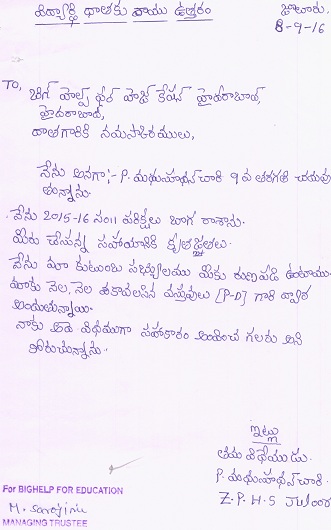 విద్యార్థి దాతకు వ్రాయు ఉత్తరం
జూలూరు,
8-9-16
TO,
బిగ్ హెల్ప్ ఫర్ ఎడ్యుకేషన్ హైదరాబాద్,
హైదరాబాద్,
దాతగారికి నమస్కారములు,
నేను అనగా;- P. మధుసూధన్ చారి 9వ తరగతి చదువు
తున్నాను.
నేను 2015-16 సం॥ పరిక్షలు బాగ రాశాను.
మిరు చేసిన సహాయానికి కృతజ్ఞతలు.
నేను మా కుటుంబ సభ్యులము మికు రుణపడి ఉంటాము
మాకు నెల, నెల కావలసిన వస్తువులు [P-D] గారి ద్వార
అందుతున్నాయి.
నాకు ఇదే విధముగా సహకారం అందించ గలరు అని
కోరుచున్నాను.
ఇట్లు
తమ విధేయుడు.
P. మధుసూధన్ చారి.
Z.P.H.S Juloor
For BIGHELP FOR EDUCATION
M. Sarojini
MANAGING TRUSTEE